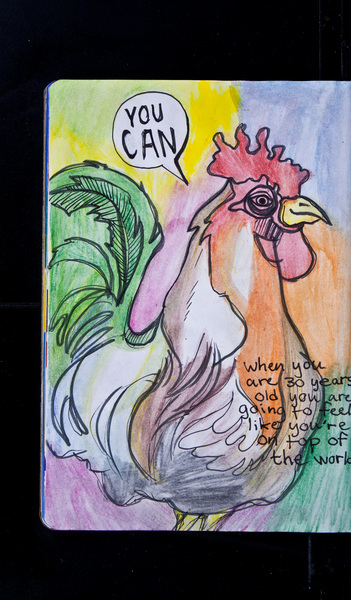 YOU
CAN
when you
are 30 years
old you are
going to feel
like you're
on top of
the world